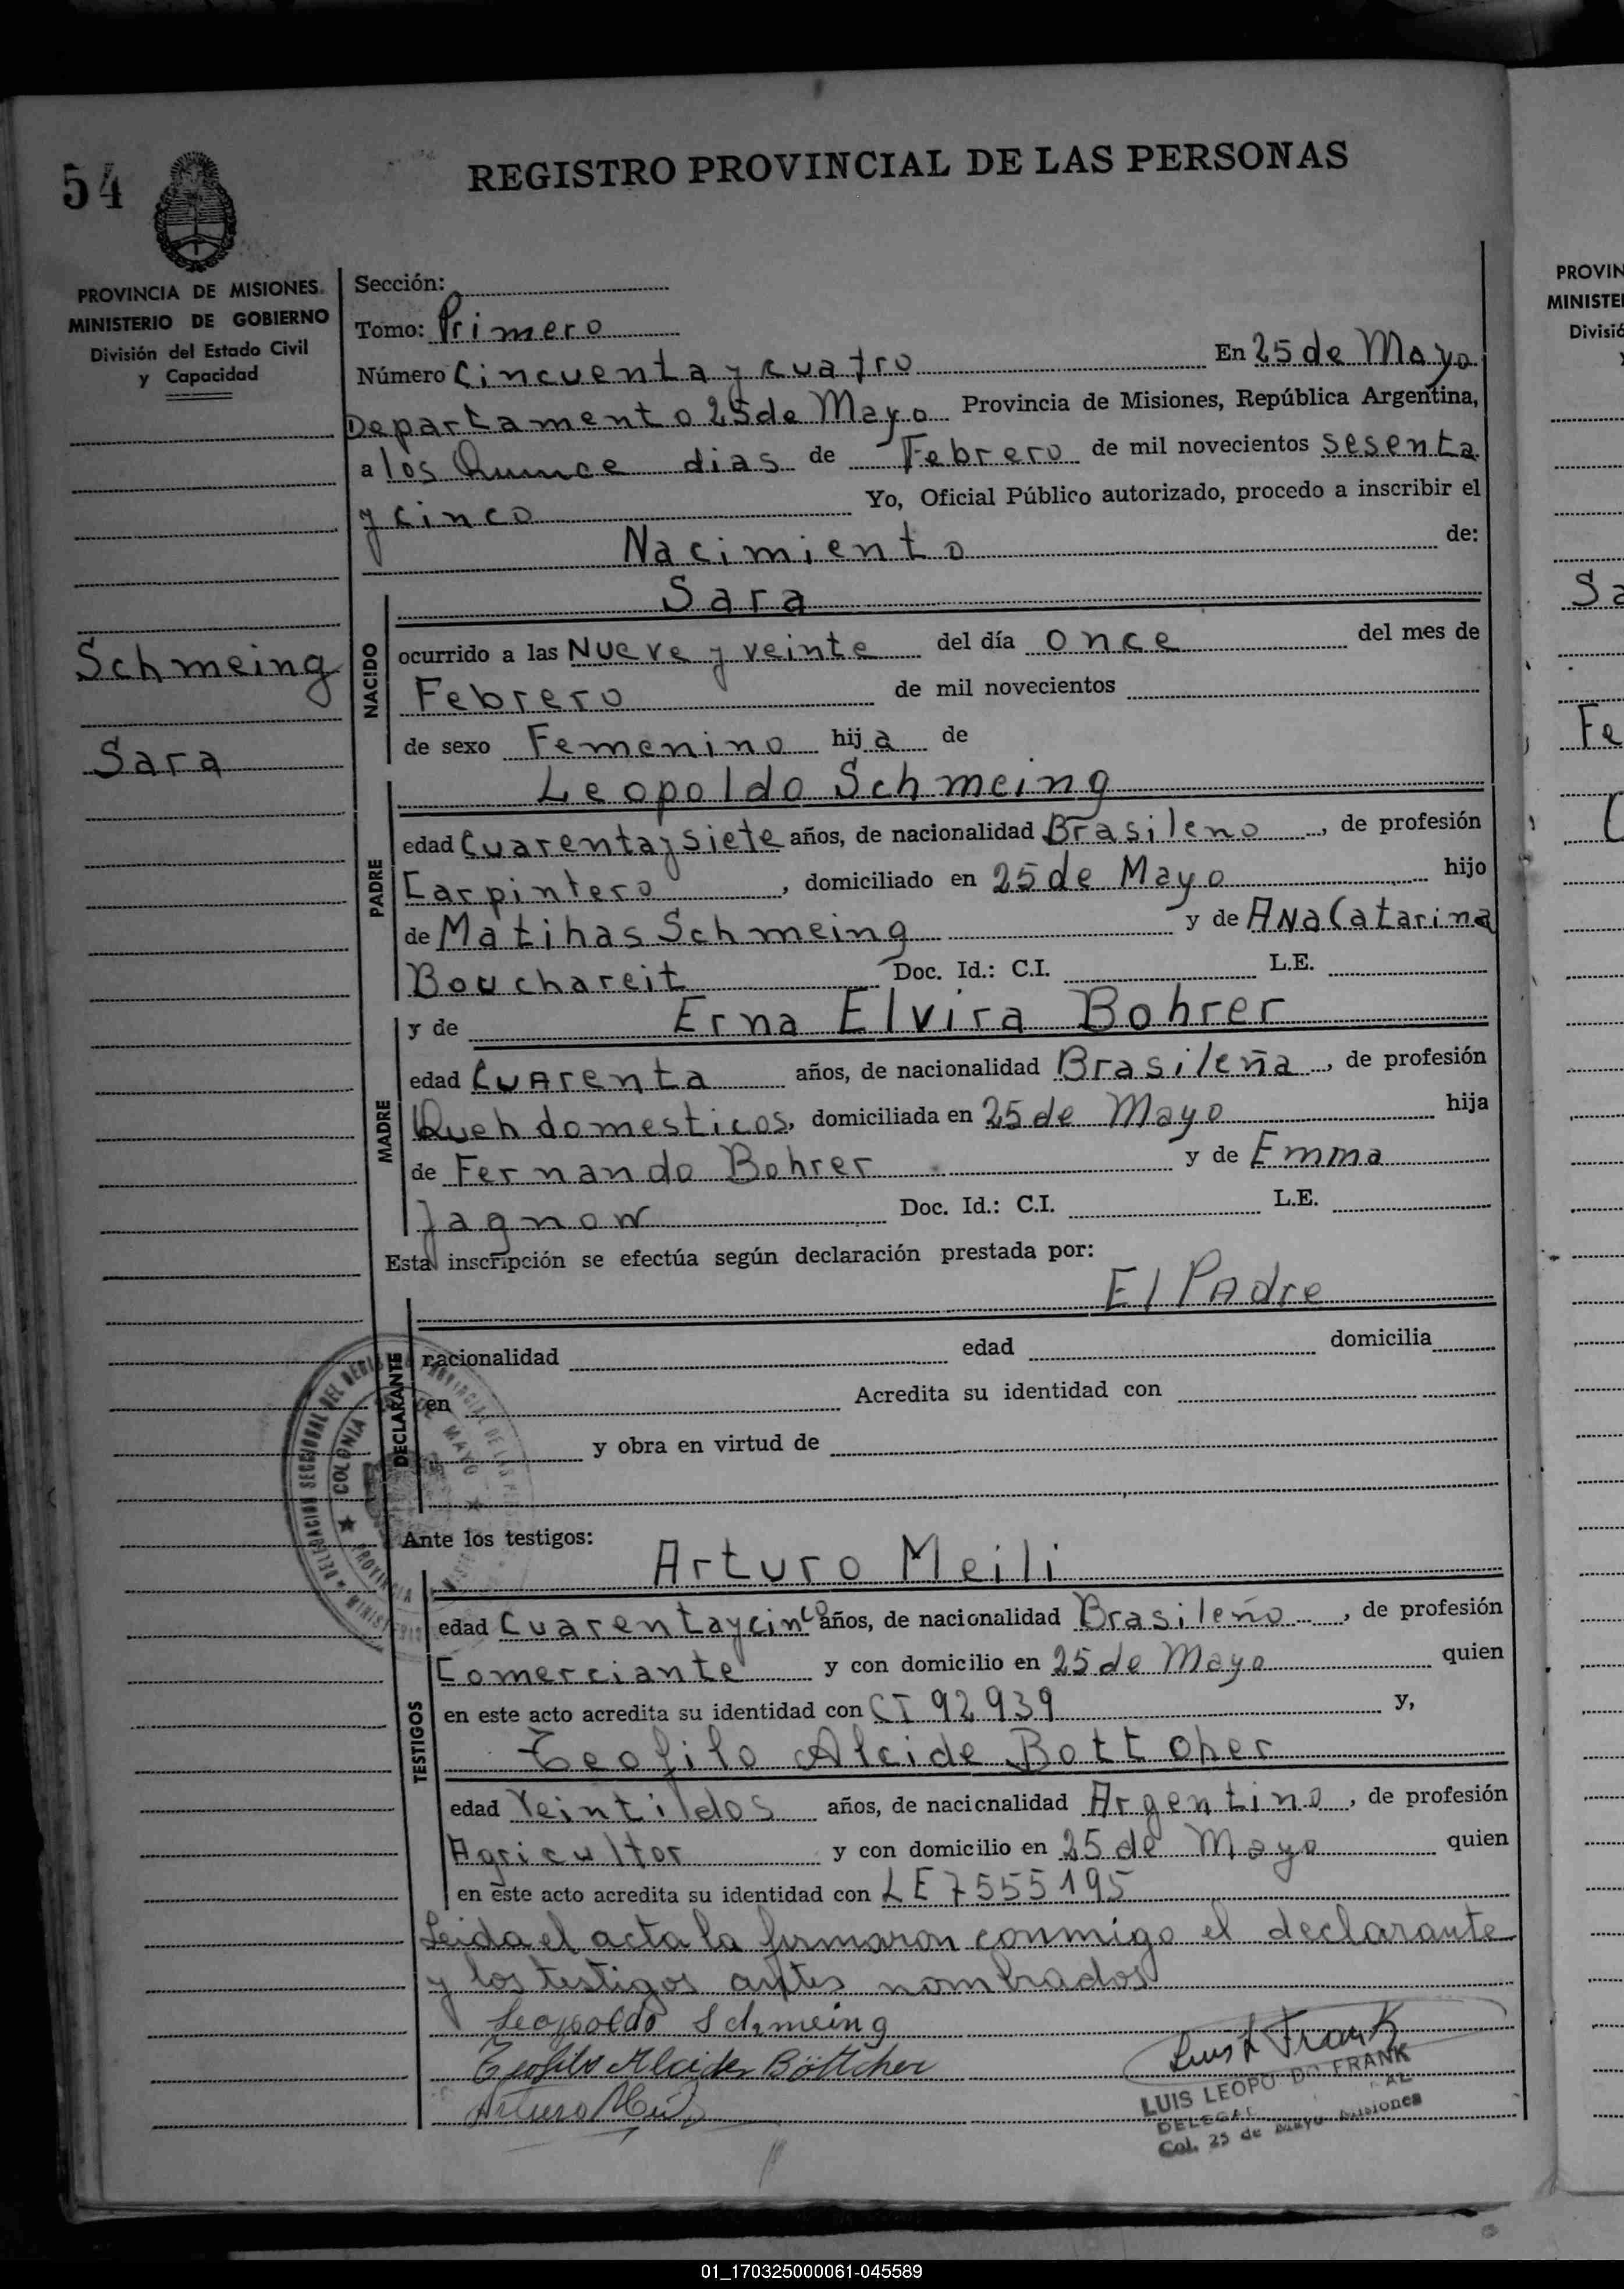 54
REGISTRO PROVINCIAL DE LAS PERSONAS
PROVINCIA DE MISIONES
MINISTERIO DE GOBIERNO
División del Estado Civil
y Capacidad
Schmeing
Sara
Sección:
Tomo: Primero
Número Cincuenta y cuatro En 25 de Mayo
Departamento 25 de Mayo Provincia de Misiones, República Argentina,
a los Quince dias de Febrero de mil novecientos sesenta
y cinco Yo, Oficial Público autorizado, procedo a inscribir el
Nacimiento de:
NACIDO
Sara
ocurrido a las Nueve y veinte del día once del mes de
Febrero de mil novecientos
de sexo Femenino hija de
PADRE
Leopoldo Schmeing
edad Cuarenta y siete años, de nacionalidad Brasileno, de profesión
Carpintero, domiciliado en 25 de Mayo hijo
de Matihas Schmeing y de Ana Catarina
Bouchareit Doc. Id.: C.I. L.E.
MADRE
y de Erna Elvira Bohrer
edad Cuarenta años, de nacionalidad Brasileña, de profesión
Queh domesticos, domiciliada en 25 de Mayo hija
de Fernando Bohrer y de Emma
Jagnow Doc. Id.: C.I. L.E.
Esta inscripción se efectúa según declaración prestada por:
El Padre
DECLARANTE
nacionalidad edad domicilia
en Acredita su identidad con
y obra en virtud de
COLONIA MAYO
Ante los testigos:
Arturo Meili
TESTIGOS
edad Cuarenta y cinco años, de nacionalidad Brasileño, de profesión
Comerciante y con domicilio en 25 de Mayo quien
en este acto acredita su identidad con CI 92939 y,
Teofilo Alcide Bottoher
edad Veintidos años, de nacionalidad Argentino, de profesión
Agricultor y con domicilio en 25 de Mayo quien
en este acto acredita su identidad con LE 7555195
Leida el acta la firmaron conmigo el declarante
y los testigos antes nombrados
Leopoldo Schmeing
Teofilo Alcides Böttcher
Arturo Meili
Luis L Frank
LUIS LEOPOLDO FRANK
Col. 25 de Mayo Misiones
PROVIN
MINISTE
Divisió
Sa
Fe
01_170325000061-045589